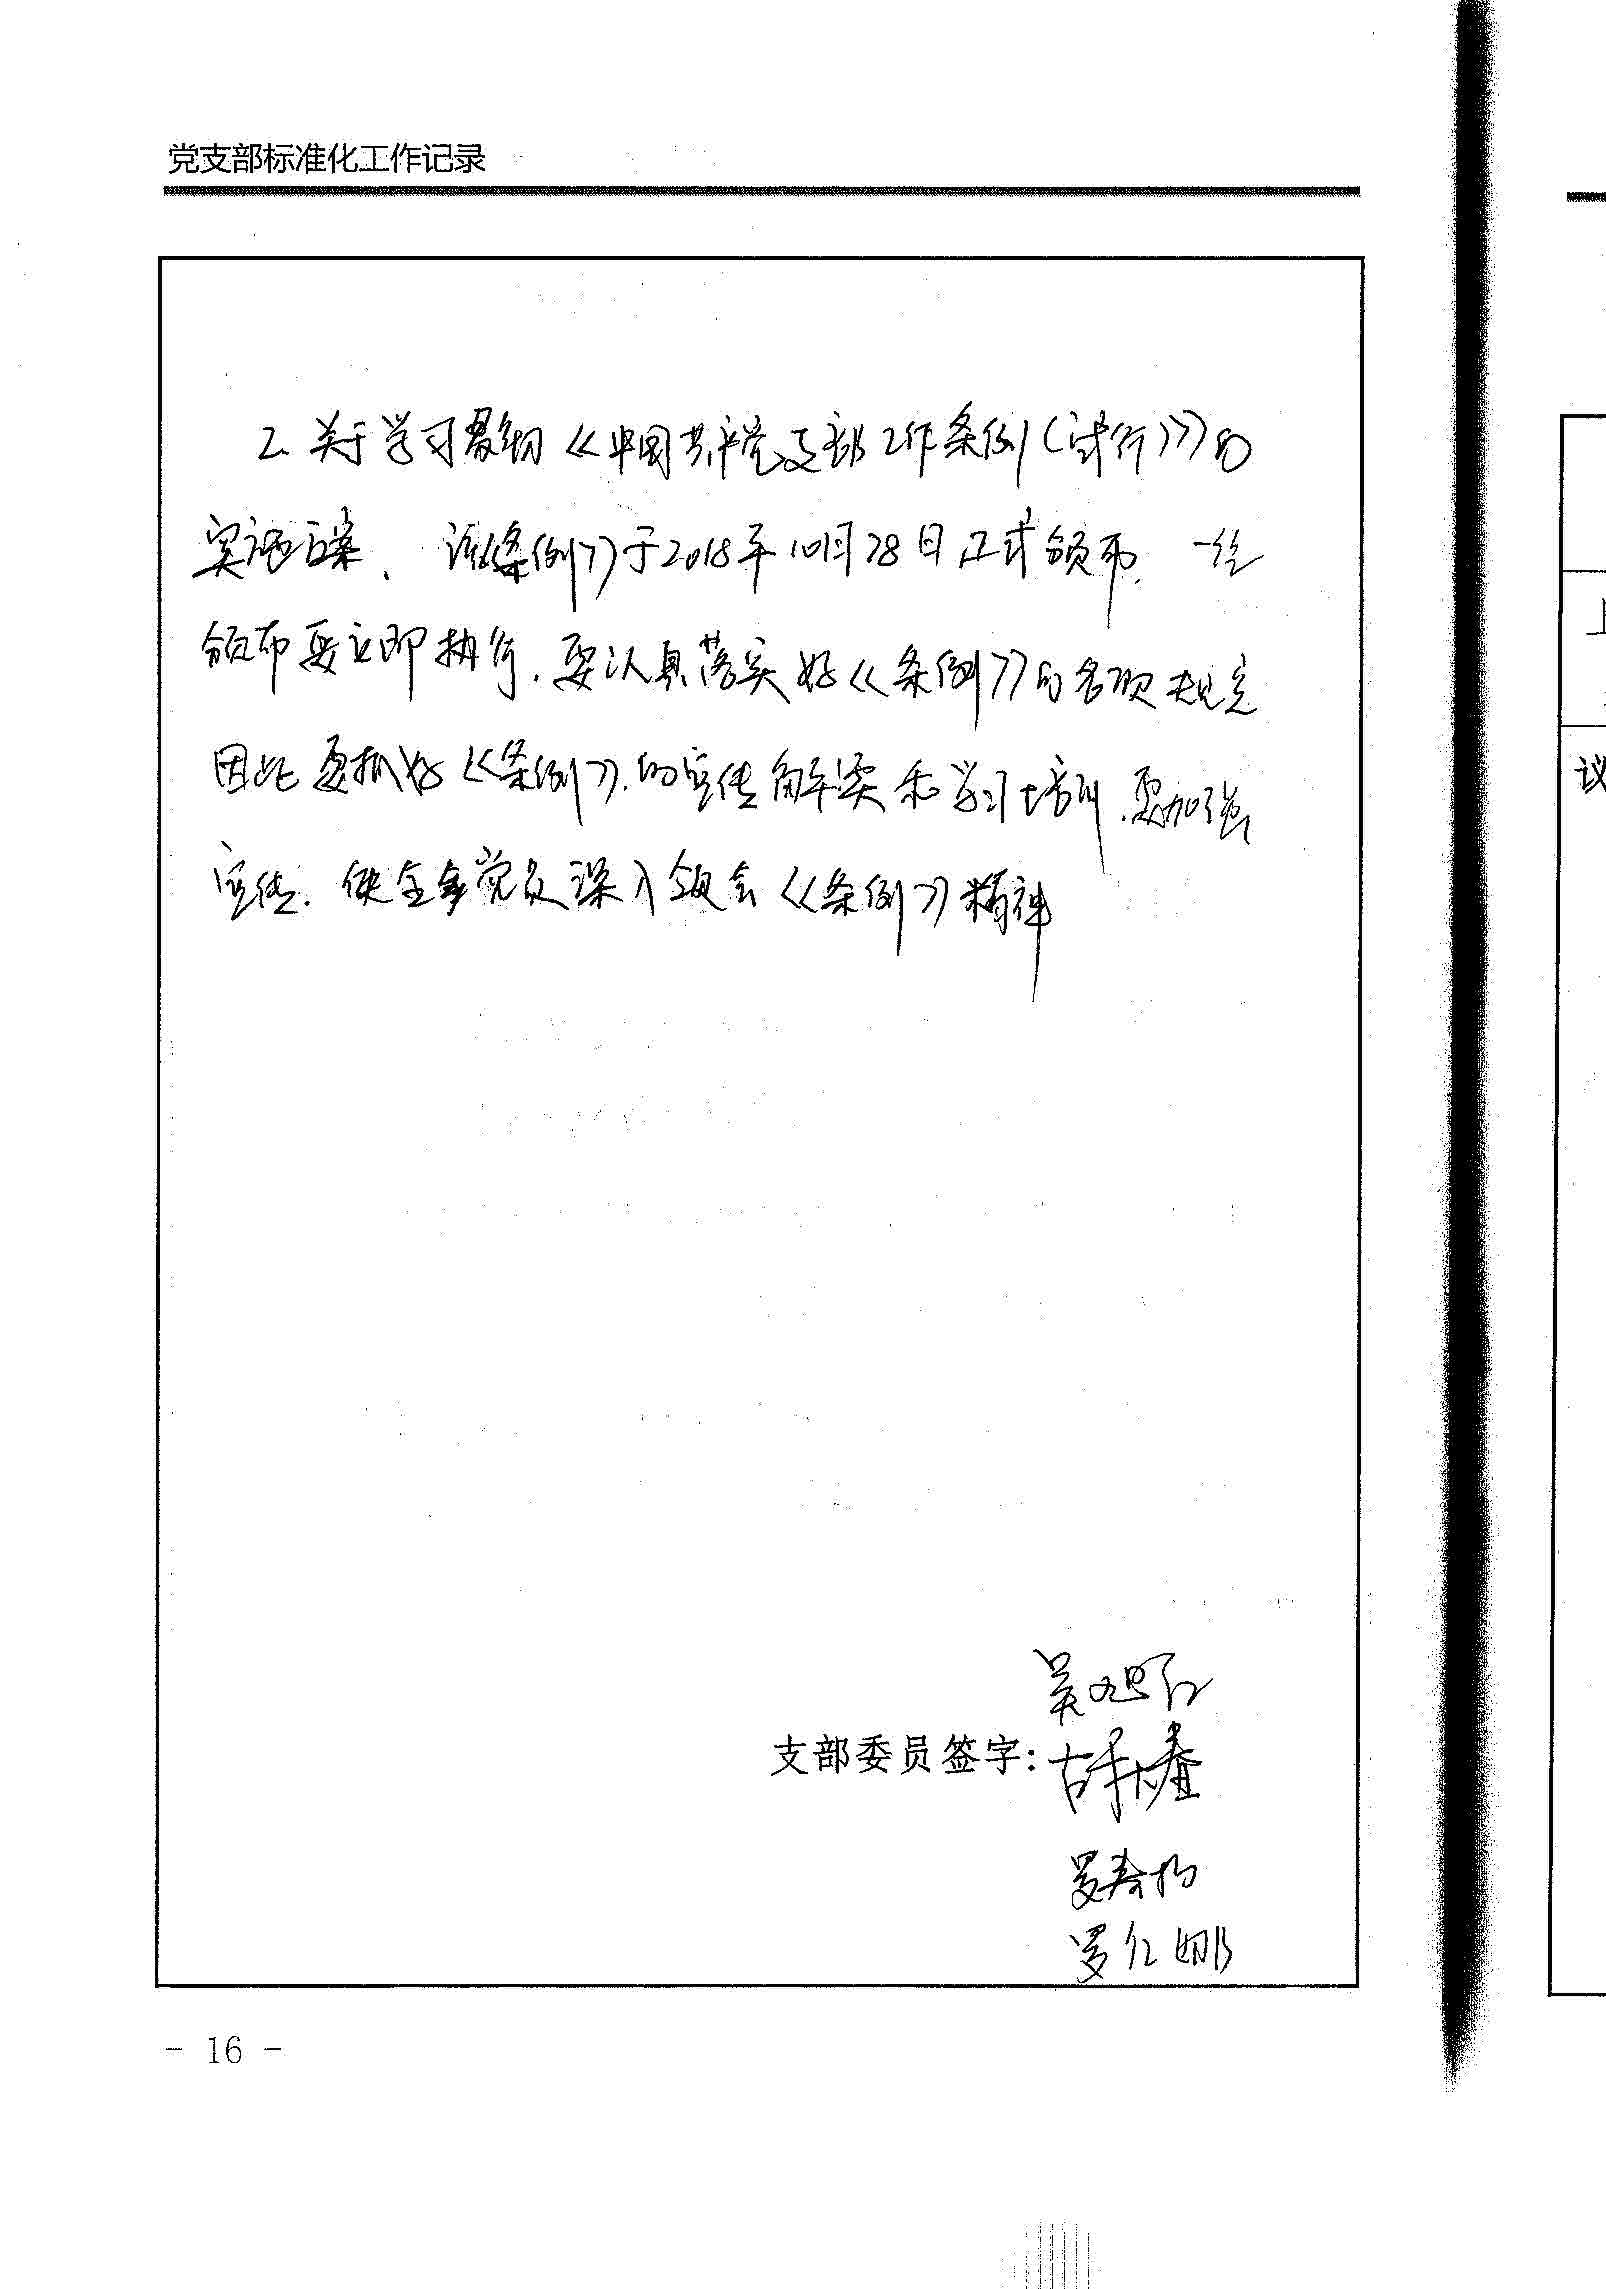 党支部标准化工作记录
2、关于学习贯彻《中国共产党支部工作条例(试行)》的
实施方案、该《条例》于2018年10月28日正式颁布、一经
颁布要立即执行.要认真落实好《条例》的各项规定
因此要抓好《条例》.的宣传解读和学习培训.要加强
宣传.使全乡党员深入领会《条例》精神
吴旭红
支部委员签字:
罗春
罗红娜
- 16 -
议